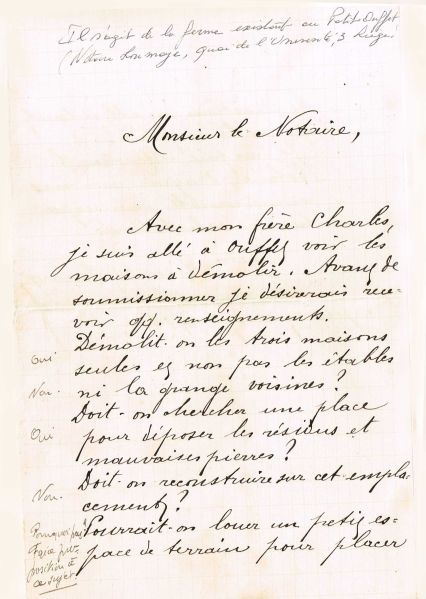 Il s'agit de la ferme existant au Petit Ouffet
(Notaire quai de l'Université, 3 Liège)
Monsieur le Notaire,
Avec mon frère Charles,
je suis allé à Ouffet voir les
maisons à démolir. Avant de
soumissionner je désirerais rece=
voir qq. renseignements.
Démolit-on les trois maisons
Oui
seules et non pas les étables
Non.
ni la grange voisines?
Doit-on chercher une place
Oui
pour déposer les résidus et
mauvaises pierres?
Doit-on reconstruire sur cet empla-
Non.
cement?
Pourquoi pas
Pourrait-on louer un petit es=
Faire pro-
position à
ce sujet
pace de terrain pour placer